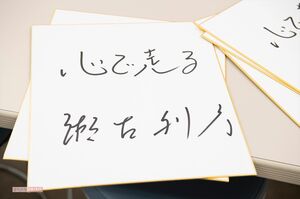 心で走る
瀬古利彦
心で